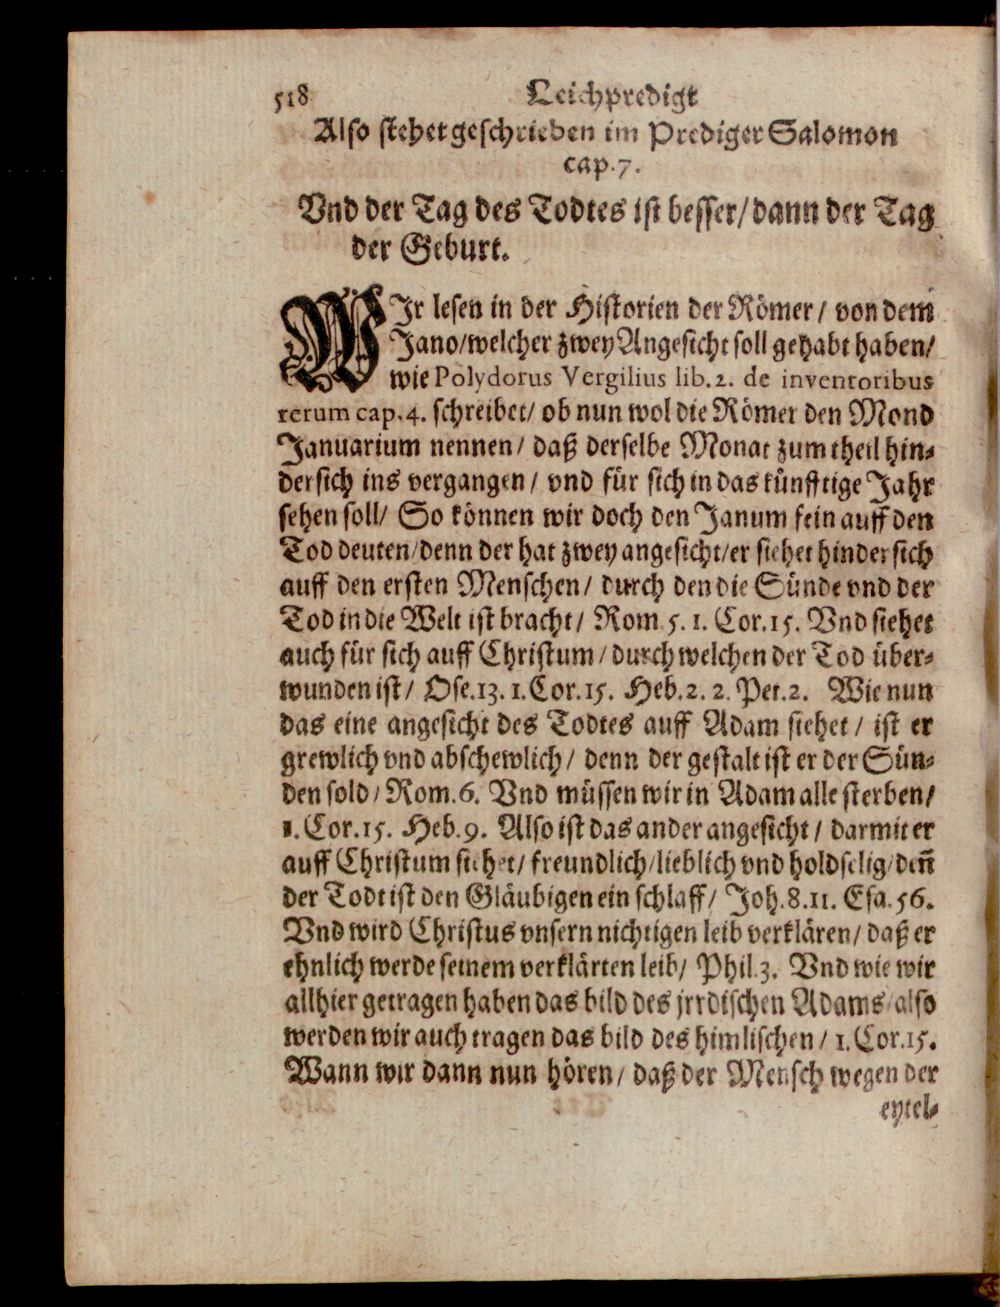 518 Leichpredigt
Also stehet geschrieben im Prediger Salomon
cap. 7.
Vnd der Tag des Todtes ist besser/ dann der Tag
der Geburt.
WIr lesen in der Historien der Römer/ von dem
Jano/welcher zwey Angesicht soll gehabt haben/
wie Polydorus Vergilius lib. 2. de inventoribus
rerum cap. 4. schreibet/ ob nun wol die Römer den Mond
Januarium nennen/ daß derselbe Monat zum theil hin-
dersich ins vergangen/ vnd für sich in das künfftige Jahr
sehen soll/ So können wir doch den Janum fein auff den
Tod deuten/denn der hat zwey angesicht/er siehet hinder sich
auff den ersten Menschen/ durch den die Sünde vnd der
Tod in die Welt ist bracht/ Rom. 5. 1. Cor. 15. Vnd siehet
auch für sich auff Christum/ durch welchen der Tod über-
wunden ist/ Ose. 13. 1. Cor. 15. Heb. 2. 2. Pet. 2. Wie nun
das eine angesicht des Todtes auff Adam siehet/ ist er
grewlich vnd abschewlich/ denn der gestalt ist er der Sün-
den sold/ Rom. 6. Vnd müssen wir in Adam alle sterben/
1. Cor. 15. Heb. 9. Also ist das ander angesicht/ darmit er
auff Christum siehet/ freundlich/lieblich vnd holdselig/deñ
der Todt ist den Gläubigen ein schlaff/ Joh. 8. 11. Esa. 56.
Vnd wird Christus vnsern nichtigen leib verklären/ daß er
ehnlich werde seinem verklärten leib/ Phil. 3. Vnd wie wir
allhier getragen haben das bild des jrrdischen Adams/ also
werden wir auch tragen das bild des himlischen/ 1. Cor. 15.
Wann wir dann nun hören/ daß der Mensch wegen der
eytel-